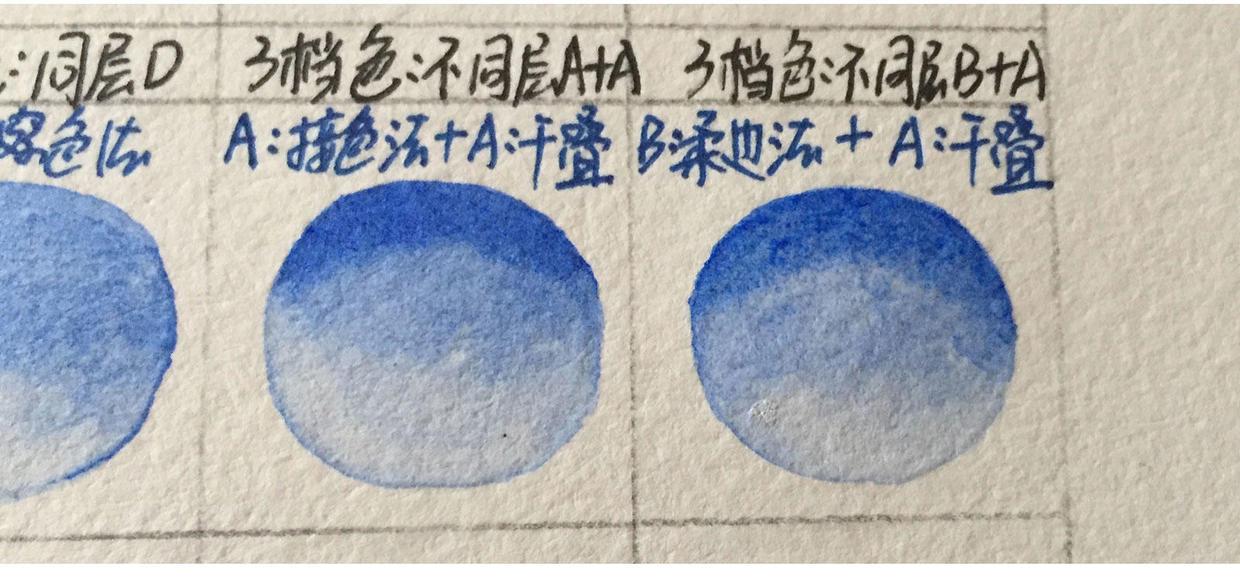 :同层D
3档色:不同层A+A
3档色:不同层B+A
色法
A:接色法+A:干叠
B:柔边法+A:干叠